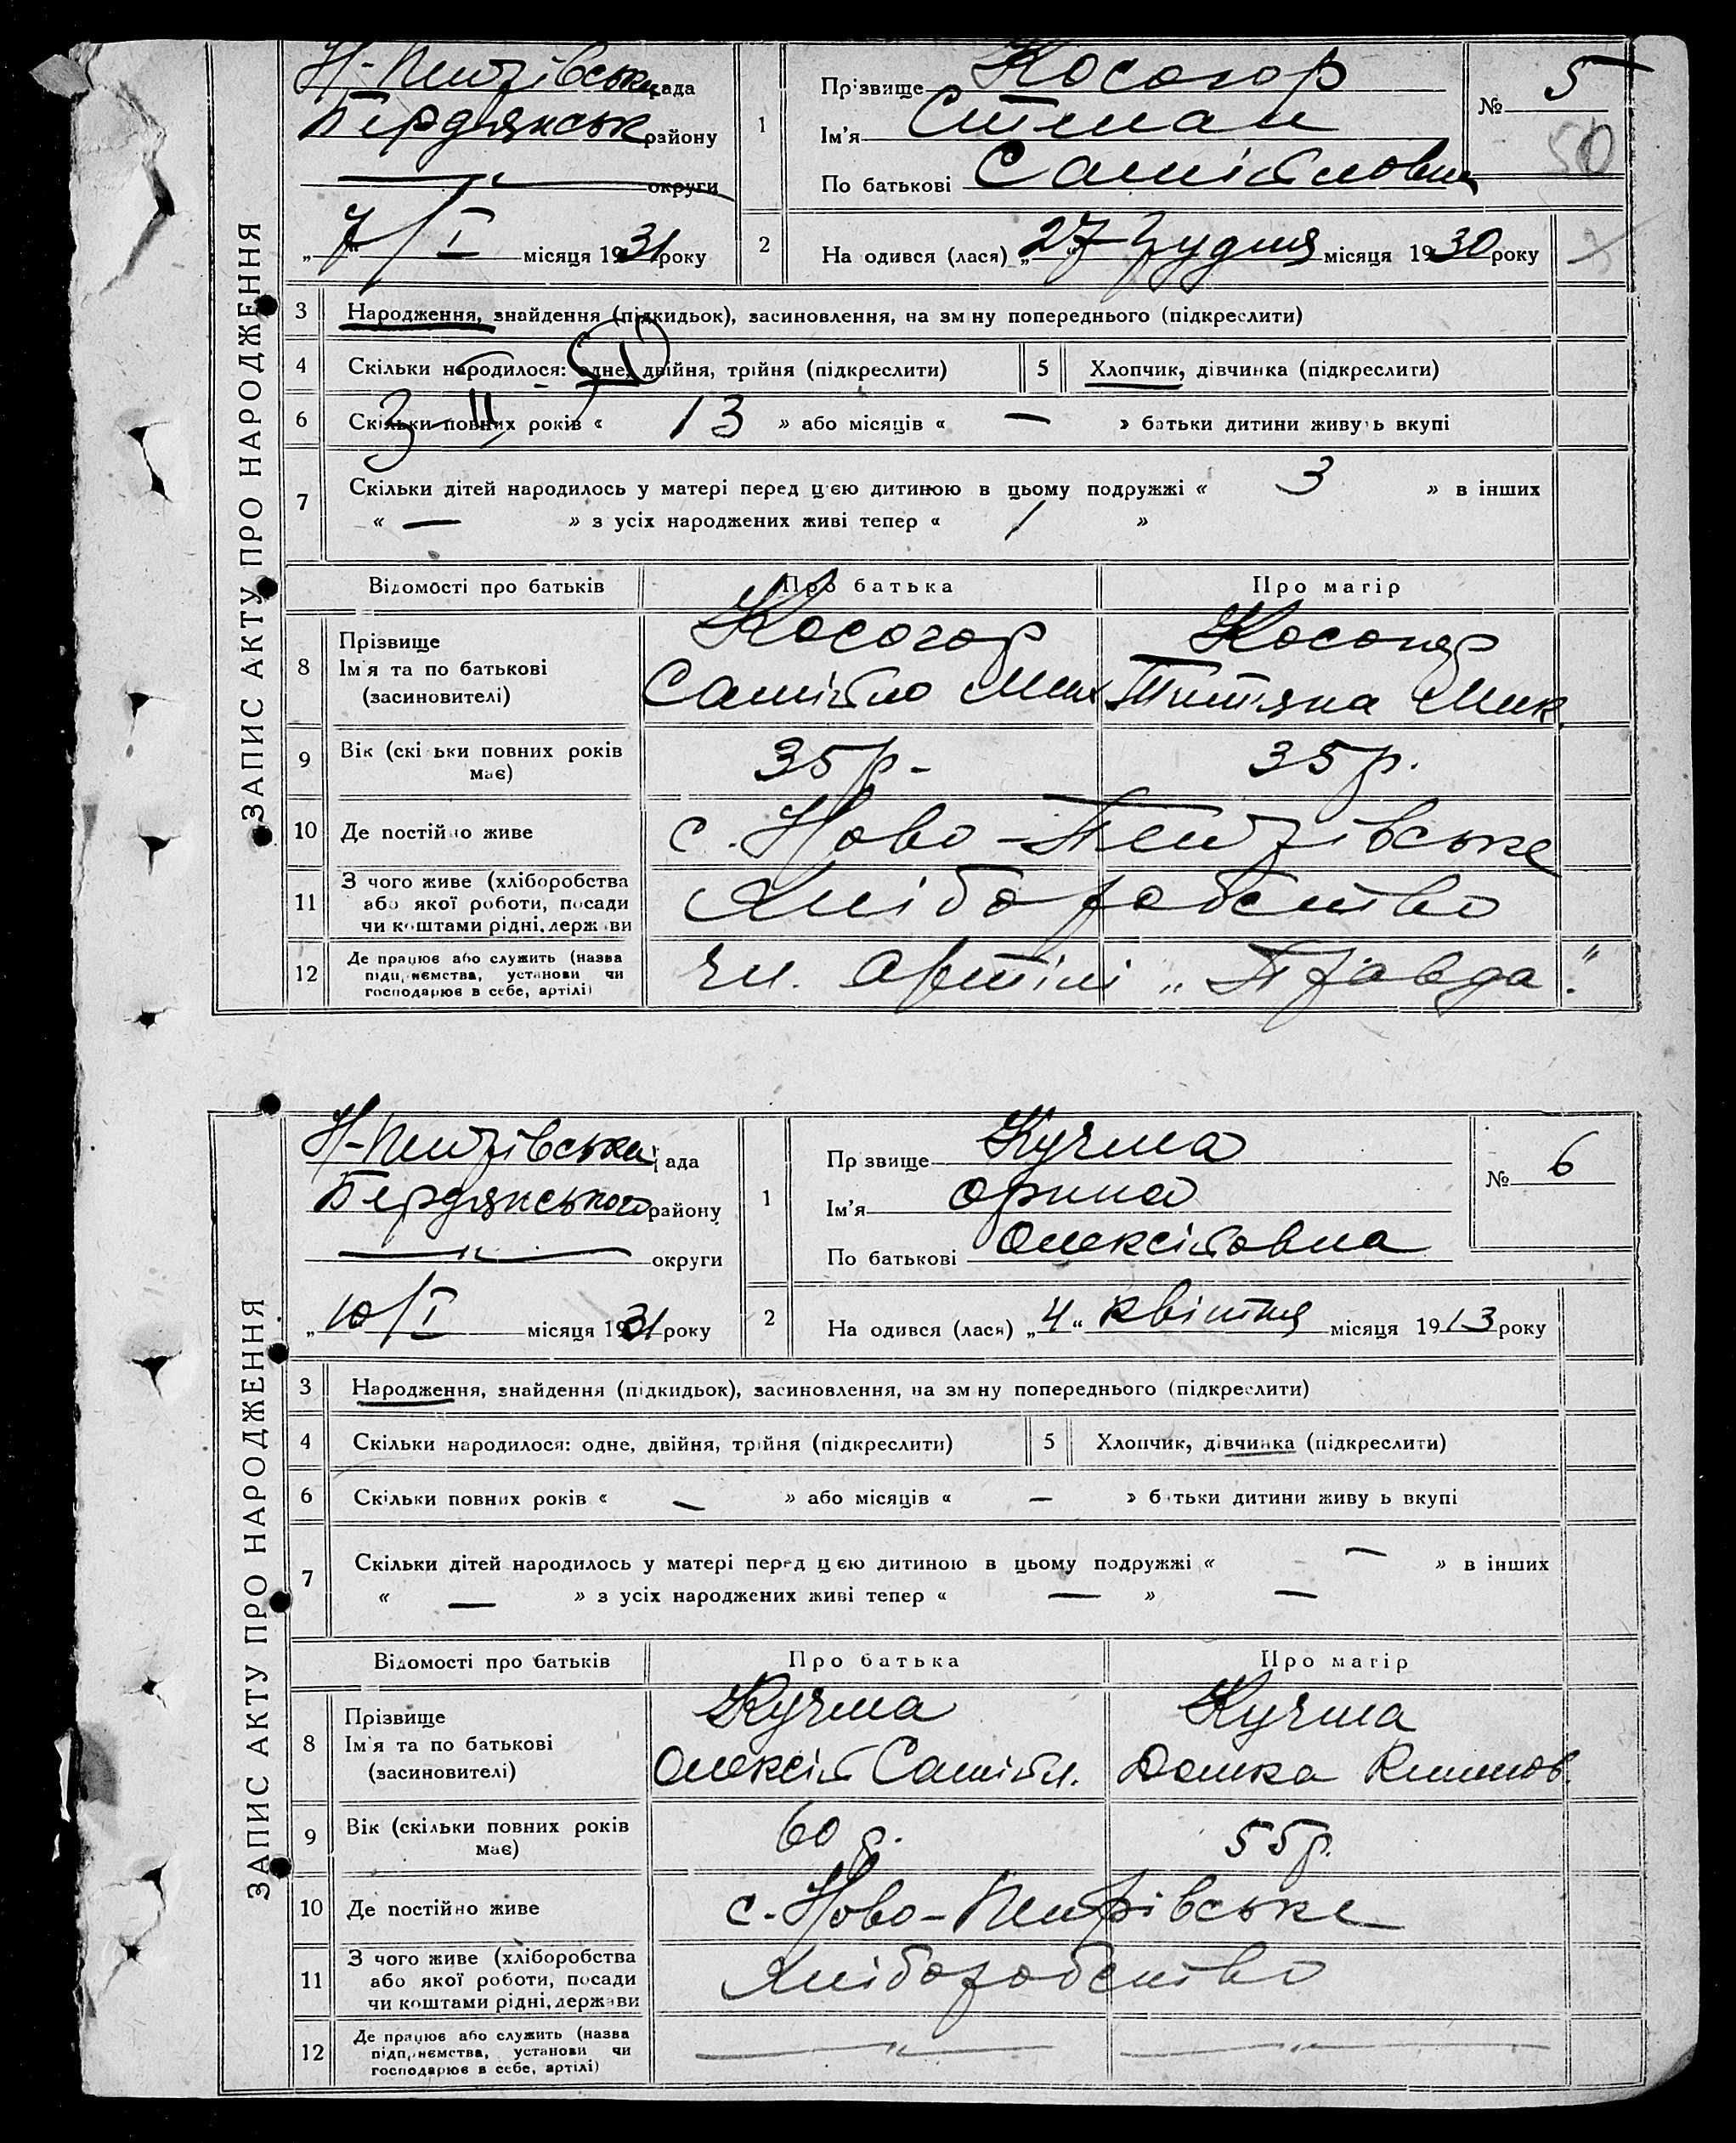 ЗАПИС АКТУ ПРО НАРОДЖЕННЯ
Н-Петрівська рада
Бердянськ району
—„— округи
„7/I“ місяця 1931 року
1
Прізвище Косогор
Ім'я Степан
По батькові Самійлович
№ 5
50
2
На одився (лася) „27“ Грудня місяця 1930 року
3 Народження, знайдення (підкидьок), засиновлення, на зм ну попереднього (підкреслити)
4 Скільки народилося: одне, двійня, трійня (підкреслити)
1
5 Хлопчик, дівчинка (підкреслити)
6 Скільки повних років « 13 » або місяців « — » батьки дитини живуть вкупі
3-II
7 Скільки дітей народилось у матері перед цією дитиною в цьому подружжі « 3 » в інших
« — » з усіх народжених живі тепер « 1 »
Відомості про батьків Про батька Про матір
8 Прізвище
Ім'я та по батькові
(засиновителі)
Косогор
Самійло Мих
Косогор
Тит'яна Мик.
9 Вік (скі ьки повних років
має)
35 р. 35 р.
10 Де постійно живе с. Ново-Петрівське
11 З чого живе (хліборобства
або якої роботи, посади
чи коштами рідні, держ ви
Хліборобство
12 Де працює або служить (назва
підприємства, установи чи
господарює в себе, артілі)
чл. артілі „Правда“.
ЗАПИС АКТУ ПРО НАРОДЖЕННЯ
Н-Петрівська рада
Бердянського району
—„— округи
„10/I“ місяця 1931 року
1
Пр звище Кучма
Ім'я Орина
По батькові Олексійовна
№ 6
2
На одився (лася) „4“ квітня місяця 1913 року
3 Народження, знайдення (підкидьок), засиновлення, на зм ну попереднього (підкреслити)
4 Скільки народилося: одне, двійня, трійня (підкреслити)
5 Хлопчик, дівчинка (підкреслити)
6 Скільки повних років « — » або місяців « — » б тьки дитини живу ь вкупі
7 Скільки дітей народилось у матері перед цією дитиною в цьому подружжі « — » в інших
« — » з усіх народжених живі тепер « — » —
Відомості про батьків Про батька Про матір
8 Прізвище
Ім'я та по батькові
(засиновителі)
Кучма
Олексій Самійл.
Кучма
Домка Климов.
9 Вік (скільки повних років
має)
60 р. 55 р.
10 Де постійно живе с. Ново-Петрівське
11 З чого живе (хліборобства
або якої роботи, посади
чи коштами рідні, держави
Хліборобство
12 Де працює або служить (назва
підприємства, установи чи
господарює в себе, артілі)
—„— —„—